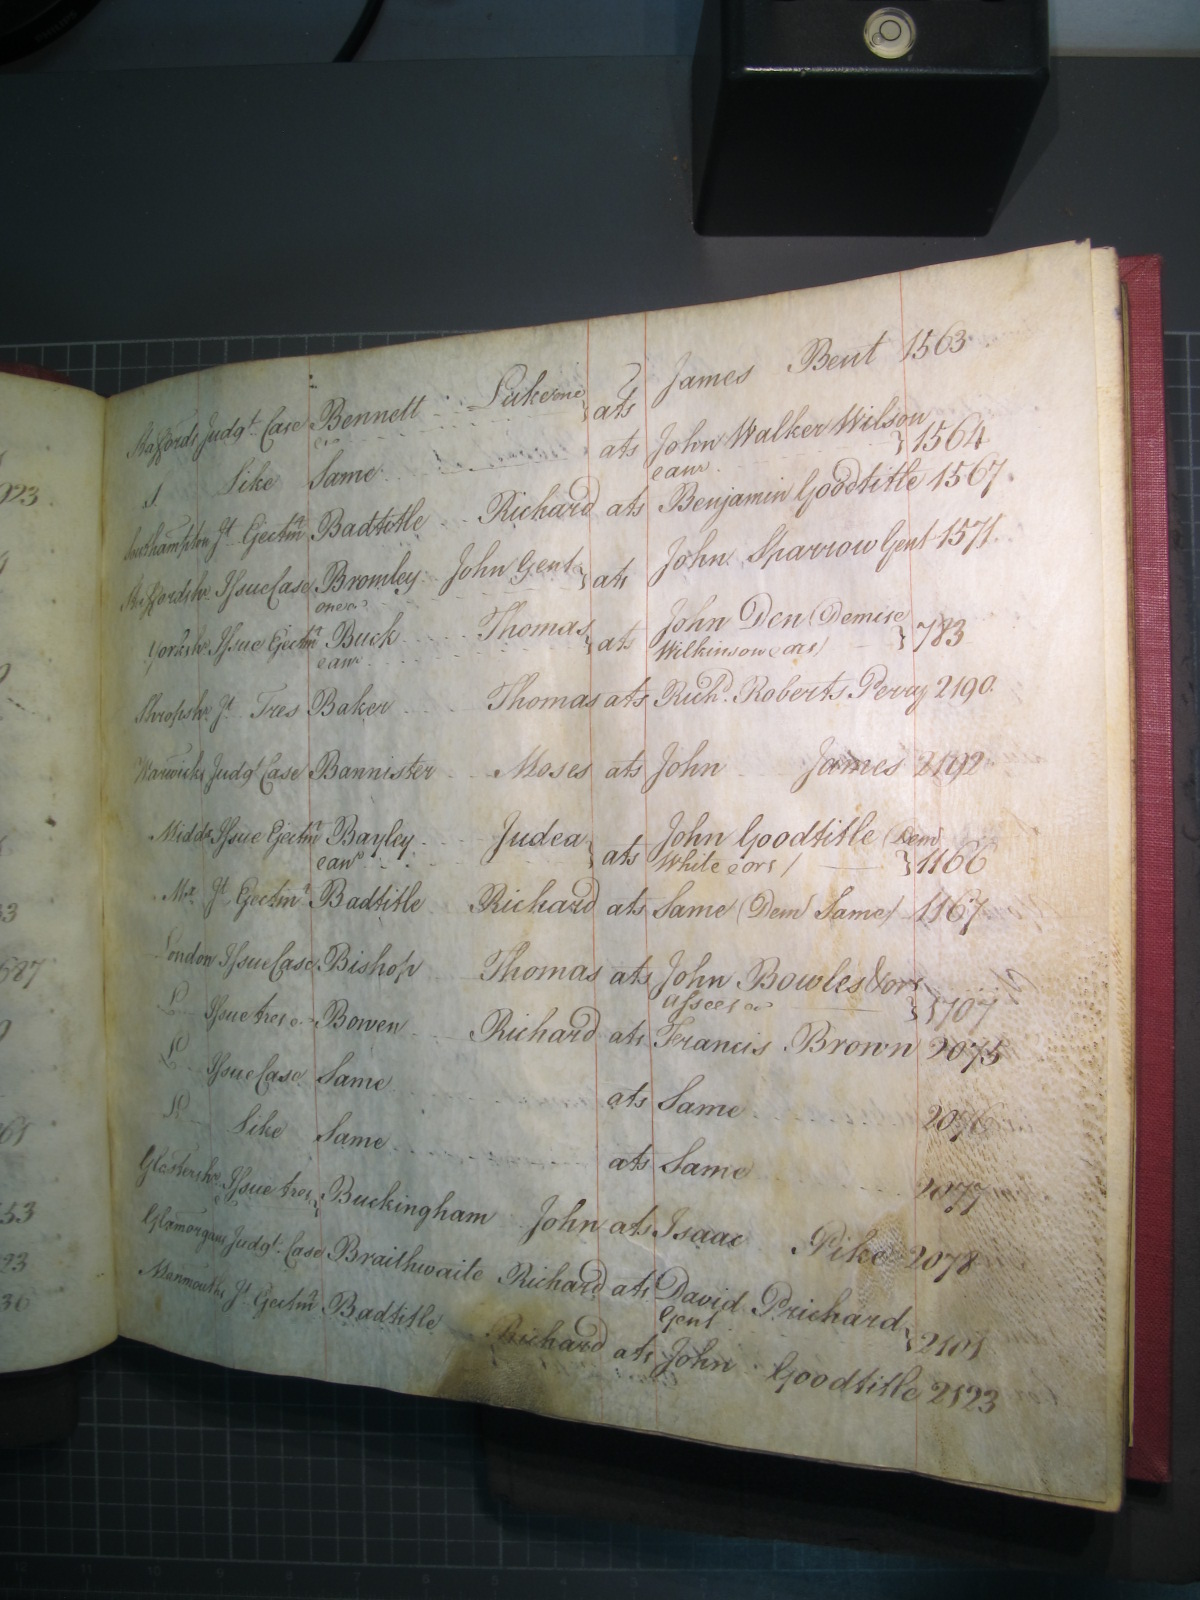 Staffords Judgt. Case Bennett Luke one ats James Bent 1563
S. Like Same ats John Walker Wilson
eanr. 1564
Southampton Jt. Ejectmt. Badtitle Richard ats Benjamin Goodtitle 1567
Staffordshr. Issue Case Bromley John Gent ats John Sparrow Gent 1571
one er
Yorkshr. Issue Ejectmt. Buck Thomas ats John Den (Demise
eanr. Wilkinson eors) 783
Shropshr. Jt. Tres Baker Thomas ats Richd. Roberts Percy 2190
Warwicks Judgt. Case Bannister Moses ats John James 2192
Middx Issue Ejectmt. Bayley Judea ats John Goodtitle (Dem
eanr. White eors) 1166
Mx. Jt. Ejectmt. Badtitle Richard ats Same (Dem Same) 1167
London Issue Case Bishop Thomas ats John Bowles & ors
assees 1707
L. Issue tres Bowen Richard ats Francis Brown 2075
L. Issue Case Same ats Same 2076
L. Like Same ats Same 2077
Glostershr. Issue tres Buckingham John ats Isaac Pike 2078
Glamorgans Judgt. Case Braithwaite Richard ats David Prichard
Gent 2101
Monmouths Jt. Ejectmt. Badtitle Richard ats John Goodtitle 2123